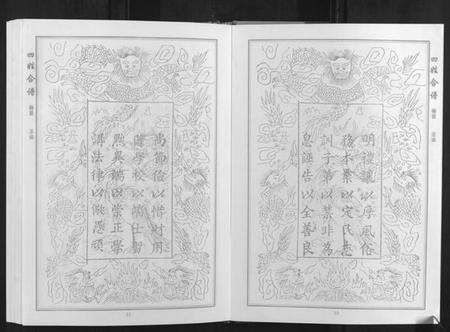 四姓合譜
尚節儉以惜財用
隆學校以端士習
黜異端以崇正學
講法律以儆愚頑
四姓合譜
明禮讓以厚風俗
務本業以定民志
訓子弟以禁非為
息誣告以全善良